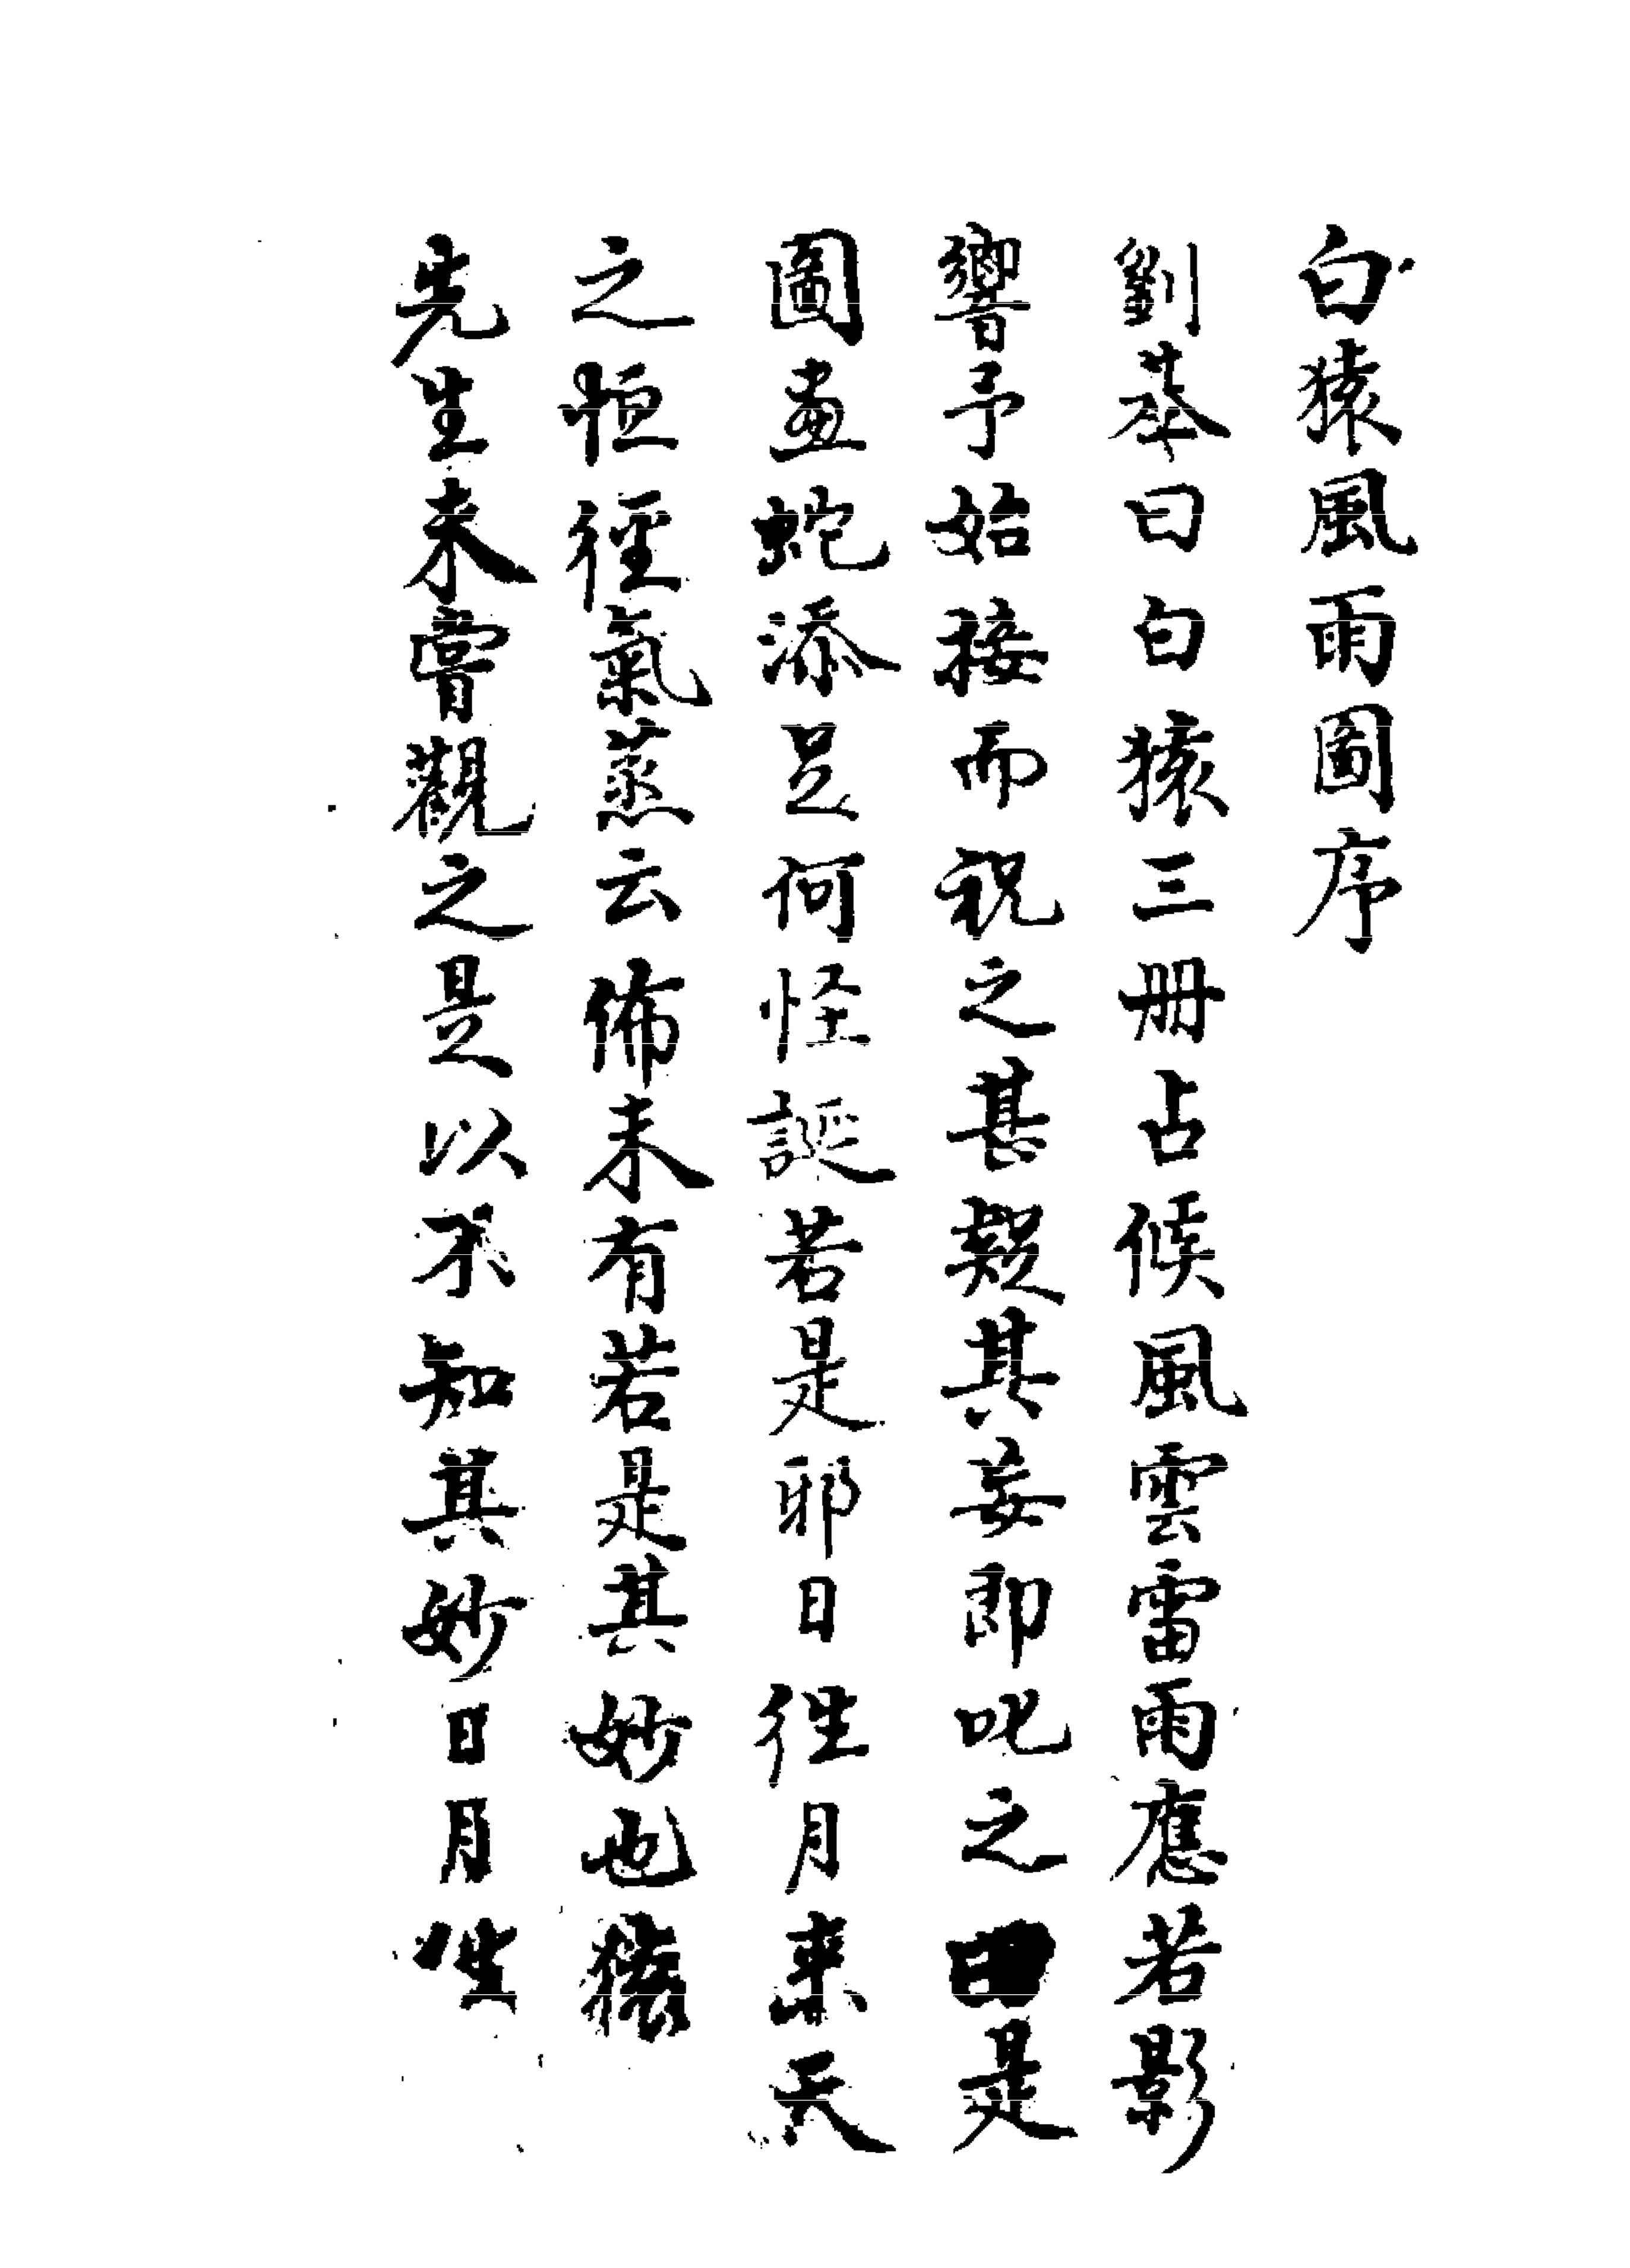 白猿風雨圖序
劉基曰白猿三册占候風雲雷雨應若影
響予始接而祝之甚疑其妄即叱之曰是
圖畫蛇添足何怪誕若是邪日徃月來天
之恒徑氣蒸云佈未有若是其妙也猿
先生未嘗觀之是以不知其妙日月徃